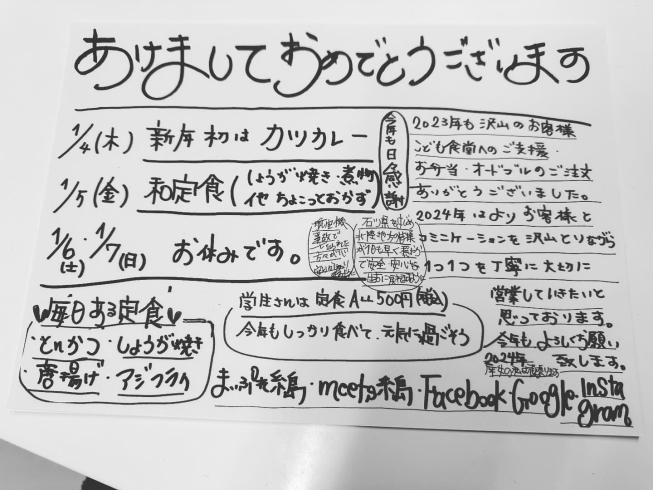 あけましておめでとうございます
1/4(木) 新年初は カツカレー
1/5(金) 和定食(しょうが焼き・煮物
他 ちょこっとおかず)
1/6(土)・1/7(日) お休みです。
今年も日々感謝
2023年も沢山のお客様
こども食堂へのご支援・
お弁当・オードブルのご注文
ありがとうございました。
2024年はよりお客様と
コミニケーションを沢山とりながら
1つ1つを丁寧に大切に
営業していきたいと
思っております。
今年もよろしくお願い
致します。
2024年
石川県を中心
北陸地方の皆様
が1日も早く
で安全 安心な
毎日ある定食
・とんかつ・しょうが焼き
・唐揚げ・アジフライ
学生さんは 定食ALL 500円(税込)
今年もしっかり食べて、元気に過ごそう
まいぷれ糸島・meets糸島・Facebook・Google・Instagram